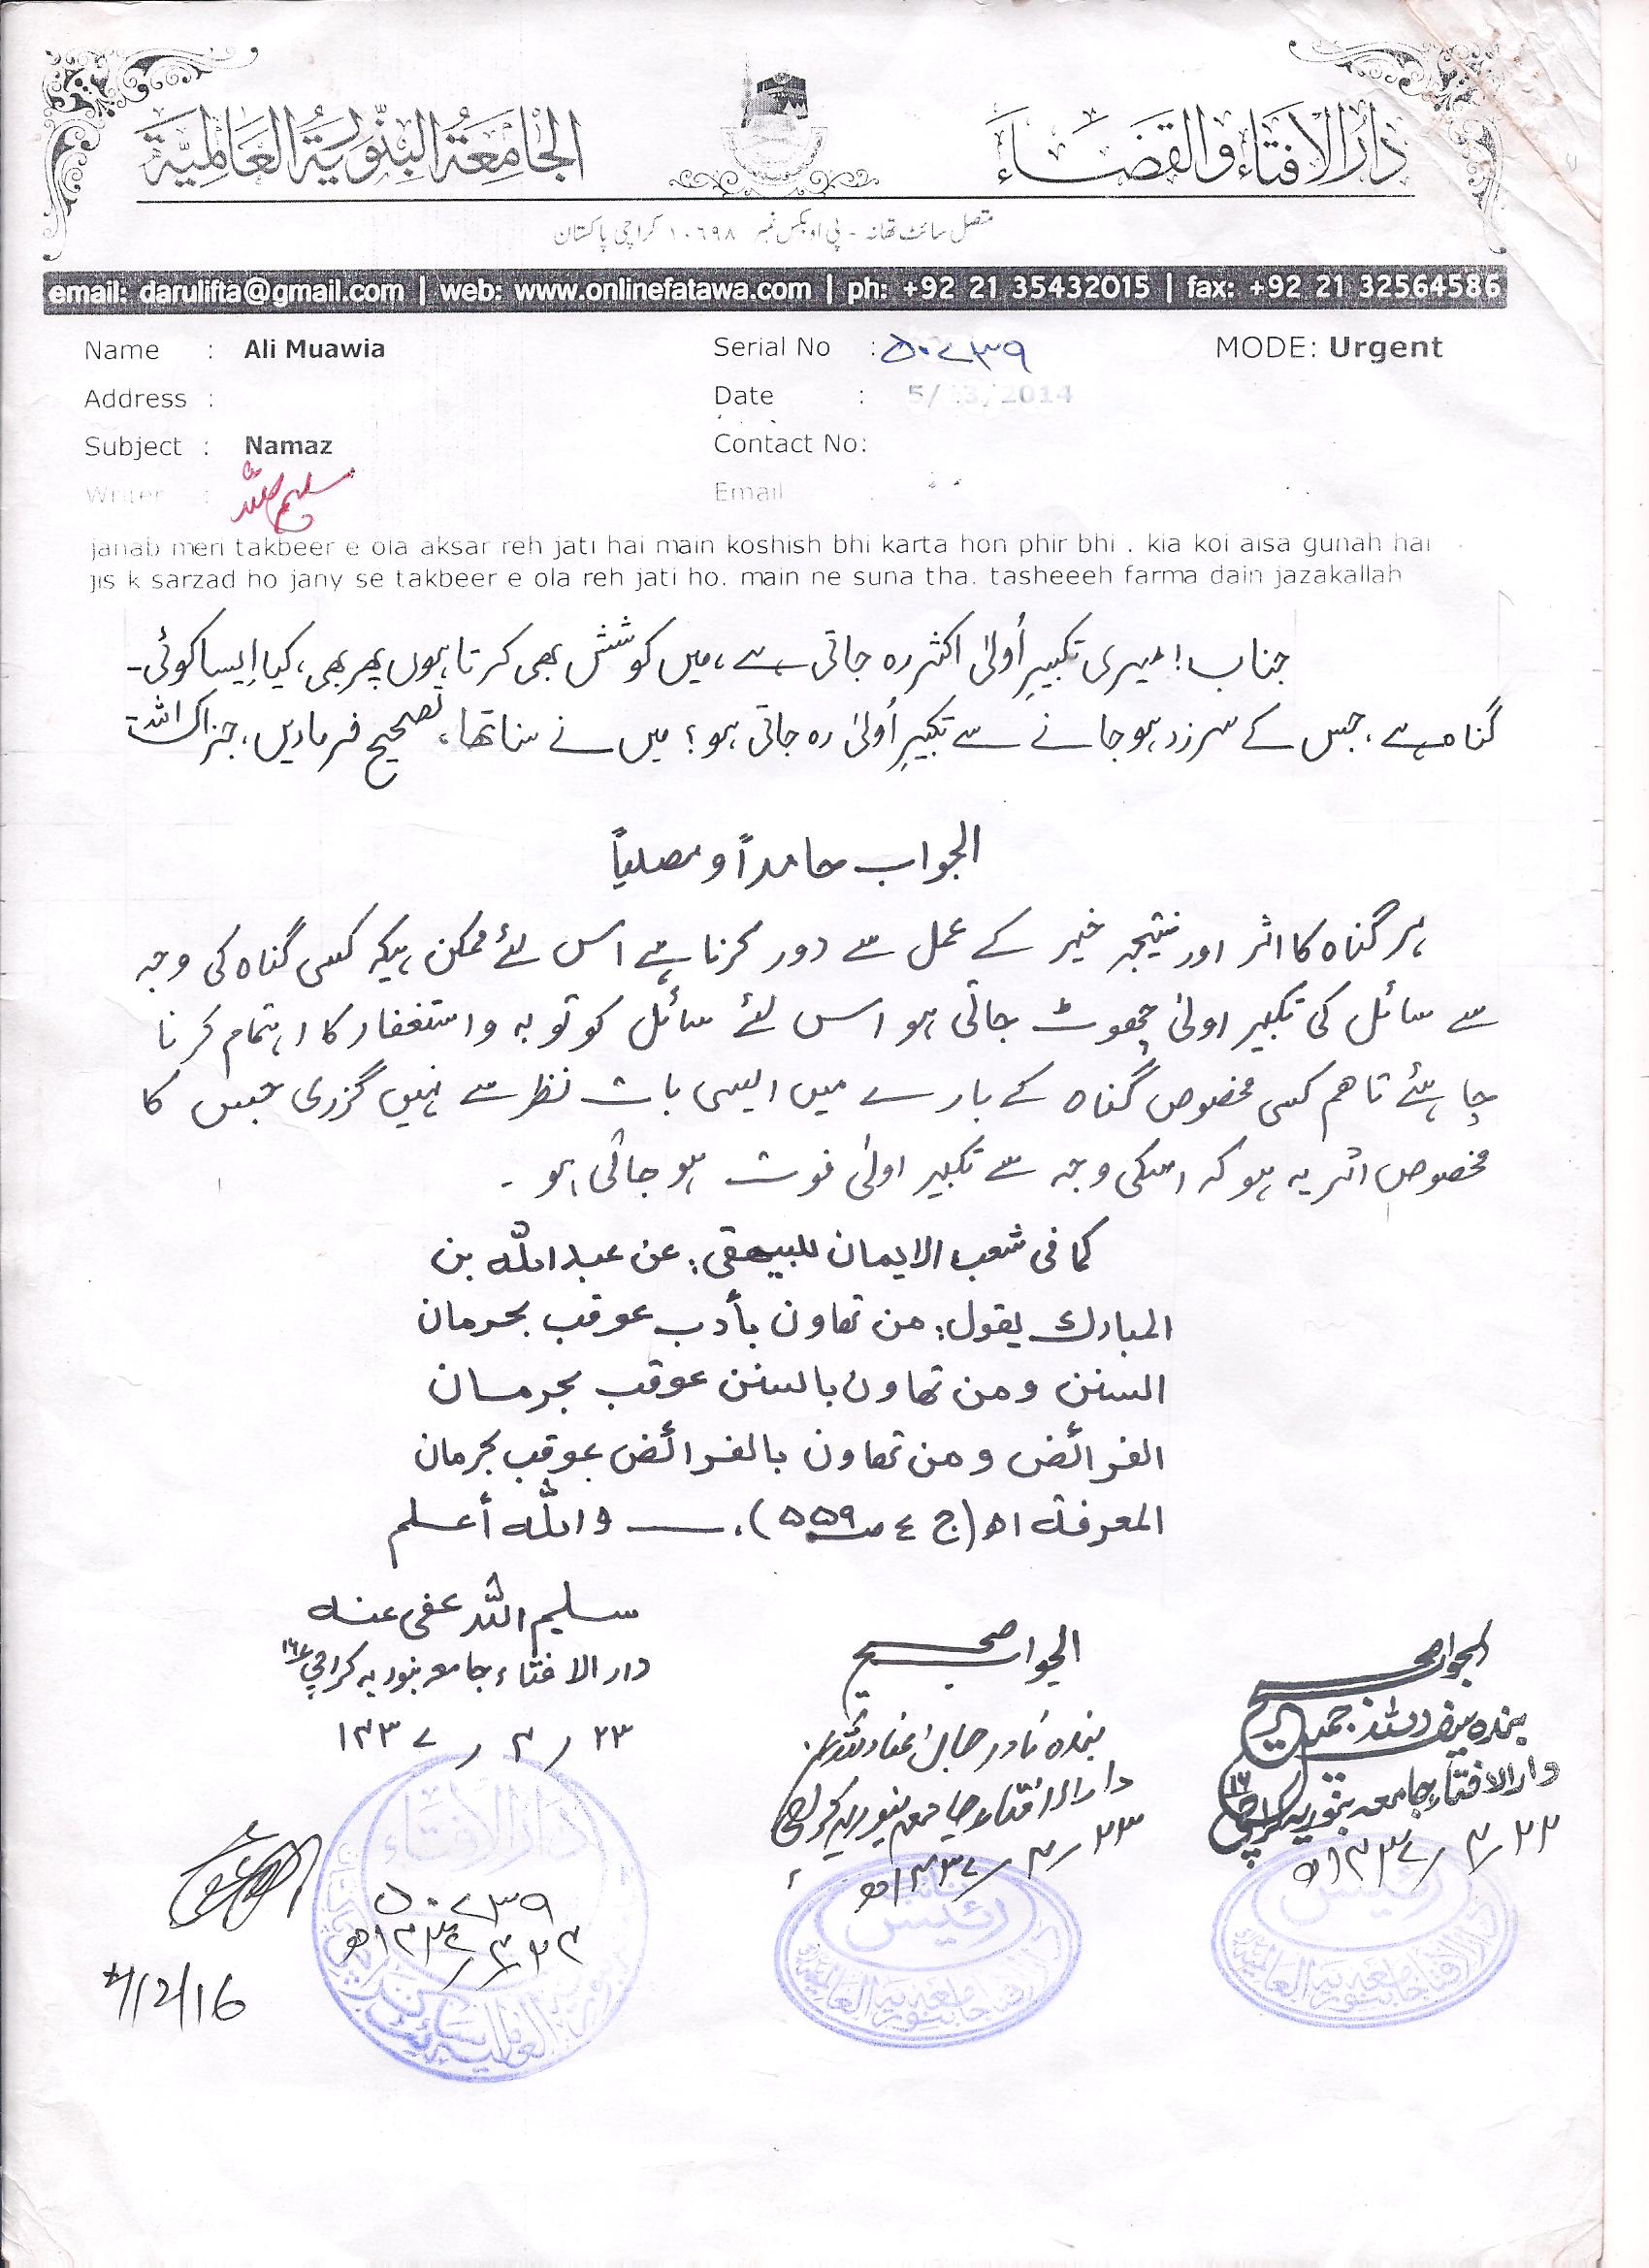 دار الافتاء والقضاء
الجامعة البنورية العالمية
متصل سائٹ تھانہ - پی او بکس نمبر ۱۰۶۹۸ کراچی پاکستان
email: darulifta@gmail.com | web: www.onlinefatawa.com | ph: +92 21 35432015 | fax: +92 21 32564586
Name : Ali Muawia Serial No : ۵۰۷۳۹ MODE: Urgent
Address : Date : 5/ 3/2014
Subject : Namaz Contact No:
Writer : سلیم اللہ Email
janab meri takbeer e ola aksar reh jati hai main koshish bhi karta hon phir bhi . kia koi aisa gunah hai
jis k sarzad ho jany se takbeer e ola reh jati ho. main ne suna tha. tasheeeh farma dain jazakallah
جناب! میری تکبیرِ اُولیٰ اکثر رہ جاتی ہے، میں کوشش بھی کرتا ہوں پھر بھی، کیا ایسا کوئی
گناہ ہے، جس کے سرزد ہو جانے سے تکبیرِ اُولیٰ رہ جاتی ہو؟ میں نے سنا تھا، تصحیح فرما دیں، جزاک اللہ
الجواب حامداً و مصلیاً
ہر گناہ کا اثر اور نتیجہ خیر کے عمل سے دور کرنا ہے اس لئے ممکن ہیکہ کسی گناہ کی وجہ
سے سائل کی تکبیر اولیٰ چھوٹ جاتی ہو اس لئے سائل کو توبہ و استغفار کا اہتمام کرنا
چاہئے تاہم کسی مخصوص گناہ کے بارے میں ایسی بات نظر سے نہیں گزری جس کا
مخصوص اثر یہ ہو کہ اسکی وجہ سے تکبیر اولیٰ فوت ہو جاتی ہو ۔
كما فى شعب الايمان للبيهقى: عن عبد الله بن
المبارك يقول: من تهاون بأدب عوقب بحرمان
السنن ومن تهاون بالسنن عوقب بحرمان
الفرائض ومن تهاون بالفرائض عوقب بحرمان
المعرفة اھ (ج ٤ ص ٥٥٩)۔ والله أعلم
سلیم اللہ عفی عنہ
دار الافتاء جامعہ بنوریہ کراچی ۱۶
۲۳ / ۴ / ۱۴۳۷
الجواب صحیح
بندہ نادر جان
دار الافتاء جامعہ بنوریہ کراچی
۲۳ / ۴ / ۱۴۳۷ھ
الجواب صحیح
بندہ سیف اللہ جمیل
دار الافتاء جامعہ بنوریہ کراچی ۱۶
۲۳ / ۴ / ۱۴۳۷ھ
دار الافتاء
۵۰۷۳۹
۲۴ / ۴ / ۱۴۳۷ھ
رئیس
دار الافتاء جامعہ بنوریہ العالمیہ
رئیس
دار الافتاء جامعہ بنوریہ العالمیہ
4/2/16